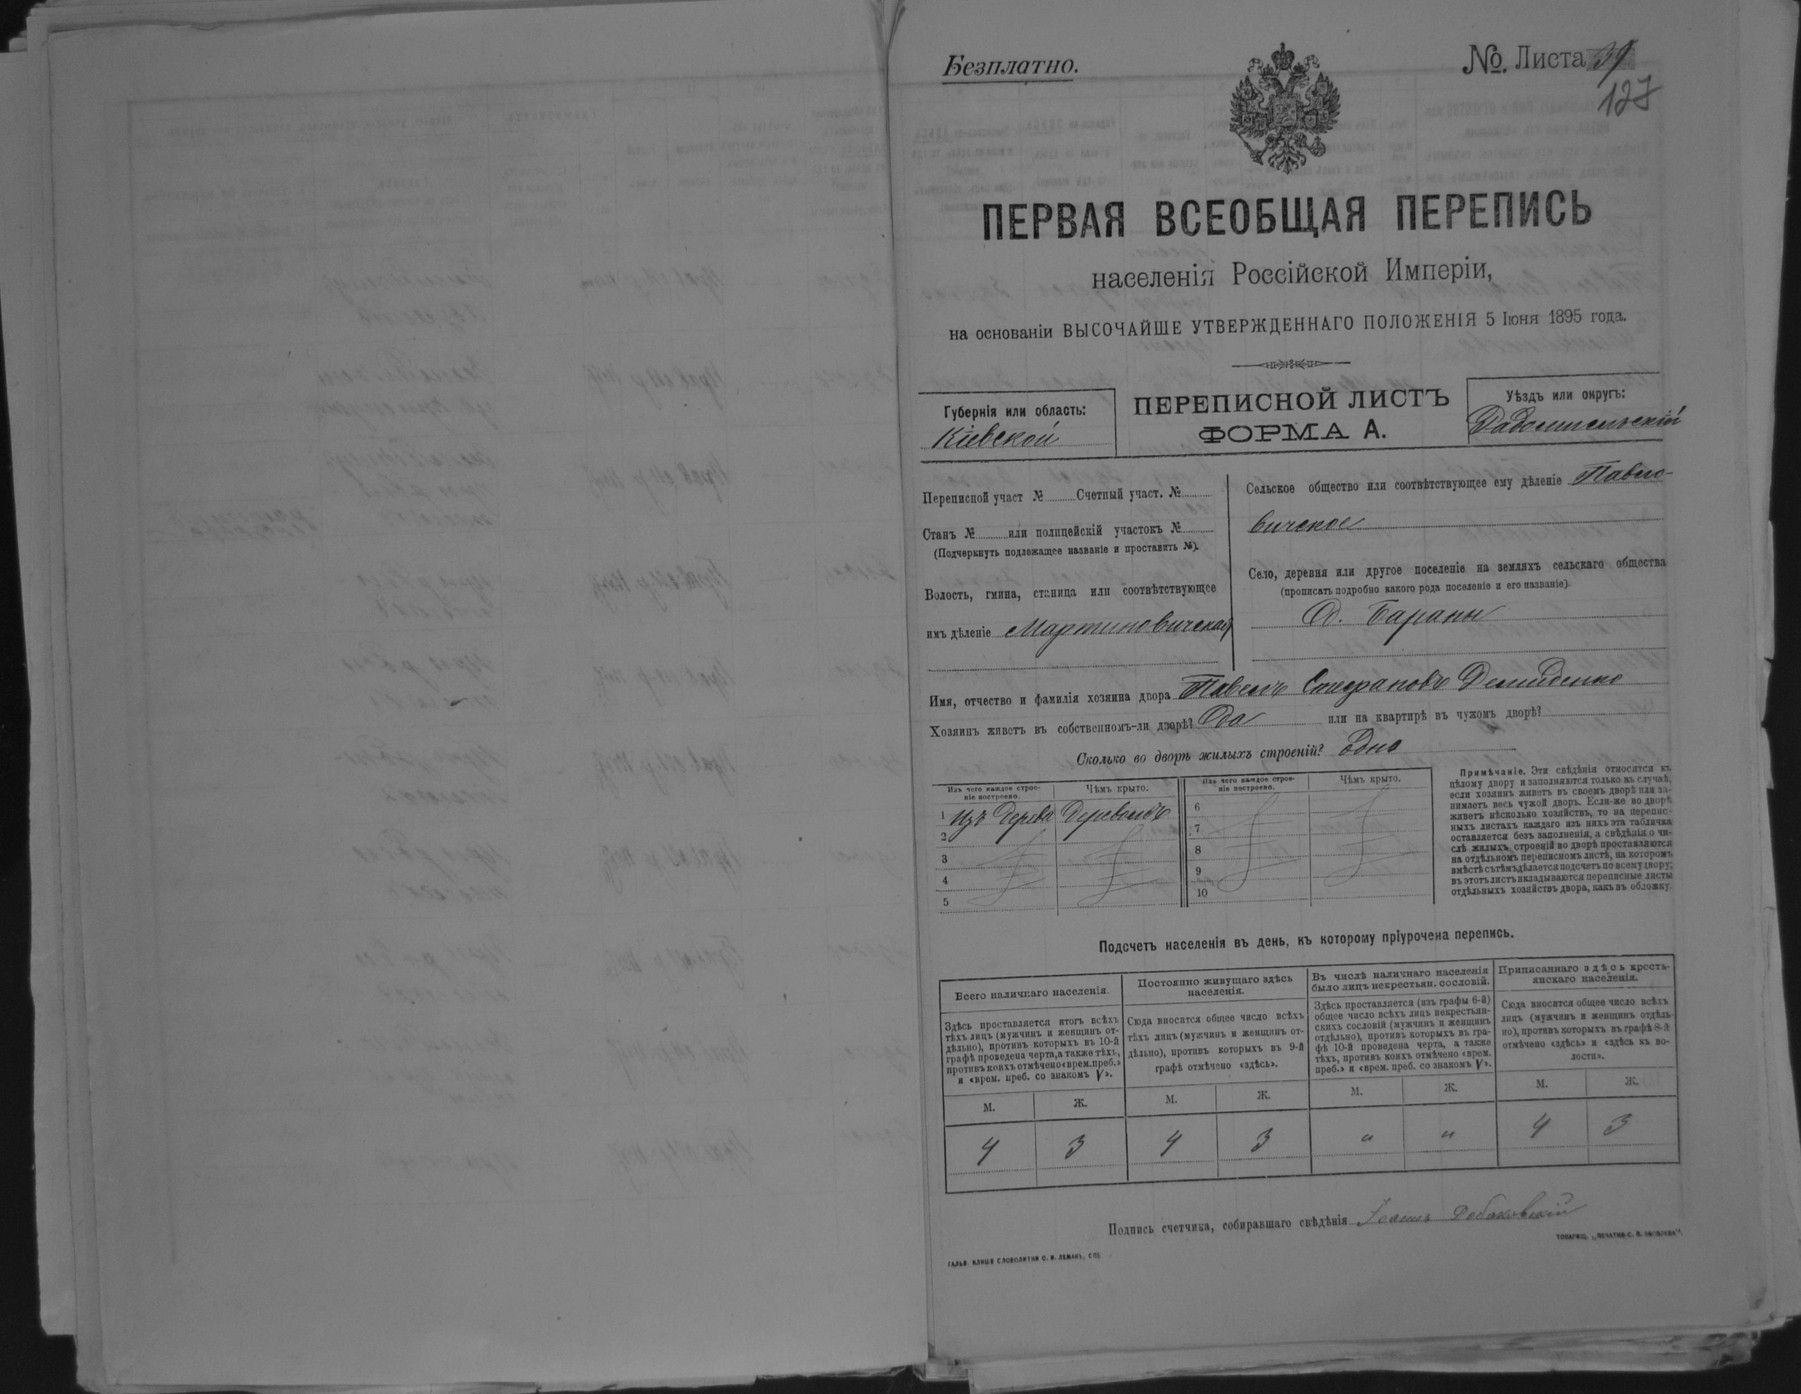 Безплатно.
№. Листа 39
127
ПЕРВАЯ ВСЕОБЩАЯ ПЕРЕПИСЬ
населенія Россійской Имперіи,
на основаніи ВЫСОЧАЙШЕ УТВЕРЖДЕННАГО ПОЛОЖЕНІЯ 5 Іюня 1895 года.
Губернія или область:
Кіевской
ПЕРЕПИСНОЙ ЛИСТЪ
ФОРМА А.
Уѣздъ или округъ:
Радомысльскій
Переписной участ № Счетный участ. №
Станъ № или полицейскій участокъ №
(Подчеркнуть подлежащее названіе и проставить №).
Волость, гмина, станица или соотвѣтствующее
имъ дѣленіе Мартиновичская
Сельское общество или соотвѣтствующее ему дѣленіе Павло-
вичское
Село, деревня или другое поселеніе на земляхъ сельскаго общества
(прописать подробно какого рода поселеніе и его названіе)
д. Бараны
Имя, отчество и фамилія хозяина двора Павелъ Демиденко
Хозяинъ живетъ въ собственномъ-ли дворѣ? Да или на квартирѣ въ чужомъ дворѣ?
Сколько во дворѣ жилыхъ строеній? одно
Изъ чего каждое строе-
ніе построено.
Чѣмъ крыто.
1 изъ дерева Деревомъ
2
3
4
5
Изъ чего каждое строе-
ніе построено.
Чѣмъ крыто.
6
7
8
9
10
Примѣчаніе. Эти свѣдѣнія относятся къ
цѣлому двору и заполняются только въ случаѣ,
если хозяинъ живетъ въ своемъ дворѣ или за-
нимаетъ весь чужой дворъ. Если-же во дворѣ
живетъ нѣсколько хозяйствъ, то на перепис-
ныхъ листахъ каждаго изъ нихъ эта табличка
оставляется безъ заполненія, а свѣдѣнія о чи-
слѣ жилыхъ строеній во дворѣ проставляются
на отдѣльномъ переписномъ листѣ, на которомъ
вмѣстѣ съ тѣмъ дѣлается подсчетъ по всему двору;
въ этотъ листъ вкладываются переписные листы
отдѣльныхъ хозяйствъ двора, какъ въ обложку.
Подсчетъ населенія въ день, къ которому пріурочена перепись.
Всего наличнаго населенія.
Здѣсь проставляется итогъ всѣхъ
тѣхъ лицъ (мужчинъ и женщинъ от-
дѣльно), противъ которыхъ въ 10-й
графѣ проведена черта, а также тѣхъ,
противъ коихъ отмѣчено «врем. преб.»
и «врем. преб. со знакомъ V».
Постоянно живущаго здѣсь
населенія.
Сюда вносится общее число всѣхъ
тѣхъ лицъ (мужчинъ и женщинъ от-
дѣльно), противъ которыхъ въ 9-й
графѣ отмѣчено «здѣсь».
Въ числѣ наличнаго населенія
было лицъ некрестьян. сословій.
Здѣсь проставляется (изъ графы 6-й)
общее число всѣхъ лицъ некрестьян-
скихъ сословій (мужчинъ и женщинъ
отдѣльно), противъ которыхъ въ гра-
фѣ 10-й проведена черта, а также
тѣхъ, противъ коихъ отмѣчено «врем.
преб.» и «врем. преб. со знакомъ V».
Приписаннаго здѣсь кресть-
янскаго населенія.
Сюда вносится общее число всѣхъ
лицъ (мужчинъ и женщинъ отдѣль-
но), противъ которыхъ въ графѣ 8-й
отмѣчено «здѣсь» и «здѣсь въ во-
лости».
М. Ж. М. Ж. М. Ж. М. Ж.
4 3 4 3 " " 4 3
Подпись счетчика, собиравшаго свѣдѣнія
ГАЛЬВ. КЛИШЕ СЛОВОЛИТНИ О. И. ЛЕМАНЪ, СПБ